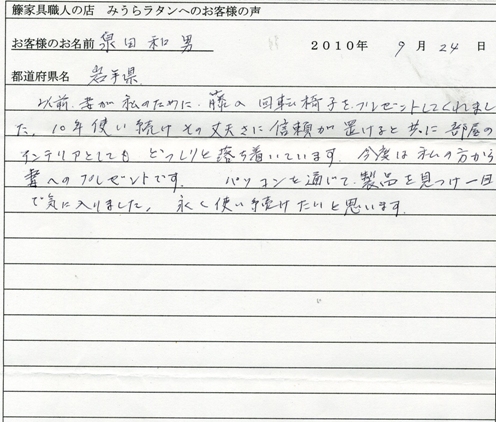 籐家具職人の店 みうらラタンへのお客様の声
お客様のお名前 泉田和男 2010年 9月24日
都道府県名 岩手県
以前、妻が私のために、藤の回転椅子をプレゼントしてくれまし
た。10年使い続けその丈夫さに信頼が置けると共に部屋の
インテリアとしても どっしりと落ち着いています。今度は私の方から
妻へのプレゼントです。 パソコンを通じて、製品を見つけ一回
で気に入りました。 永く使い続けたいと思います。